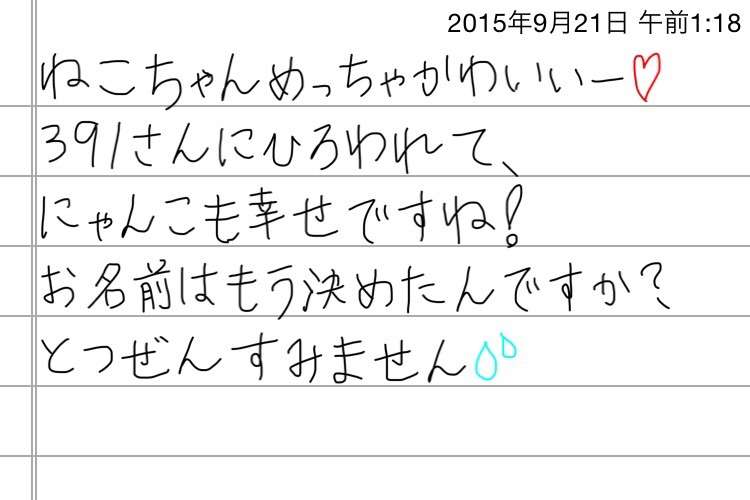 2015年9月21日 午前1:18
ねこちゃんめっちゃかわいいー♡
391さんにひろわれて、
にゃんこも幸せですね!
お名前はもう決めたんですか?
とつぜんすみません